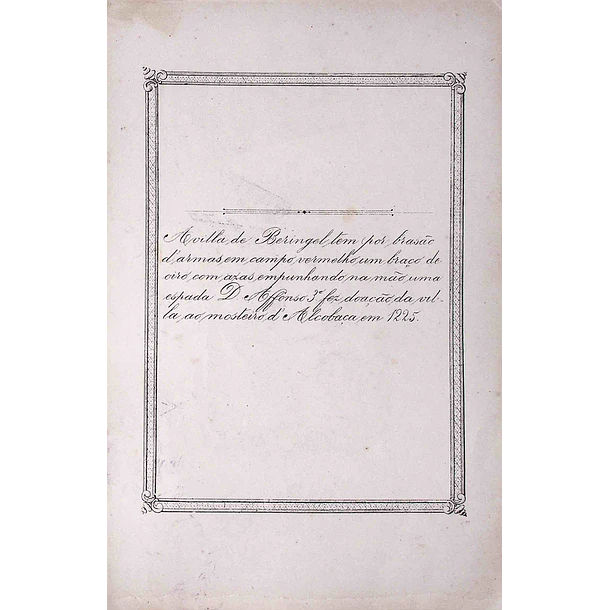 A villa de Beringel tem por brasão
d'armas em campo vermelho um braço de
oiro com azas, empunhando na mão uma
espada D. Affonso 3º fez doação da vil-
la ao mosteiro d'Alcobaça em 1225.